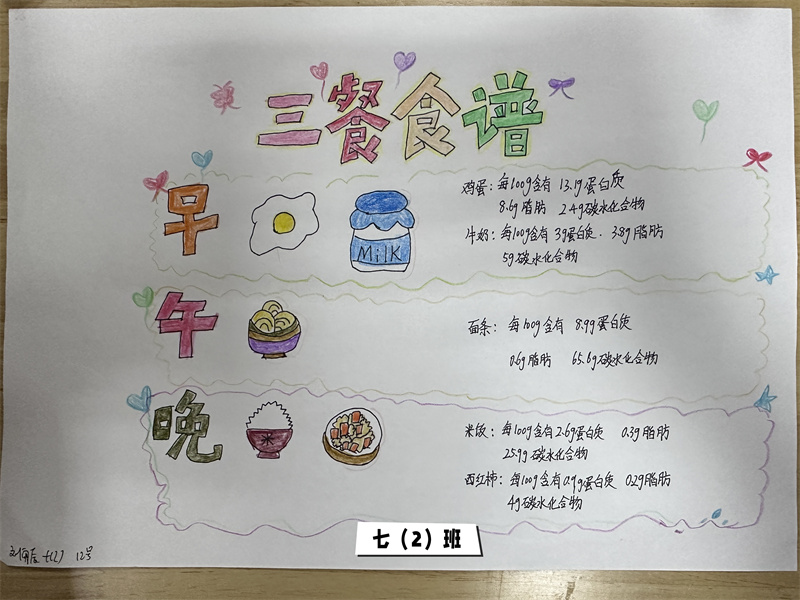 三餐食谱
早
MilK
鸡蛋：每100g含有 13.1g蛋白质
8.6g脂肪 2.4g碳水化合物
牛奶：每100g含有 3g蛋白质. 3.8g脂肪
5g碳水化合物
午
面条：每100g含有 8.9g蛋白质
0.6g脂肪 65.6g碳水化合物
晚
米
米饭：每100g含有2.6g蛋白质 0.3g脂肪
25.9g碳水化合物
西红柿：每100g含有0.9g蛋白质 0.2g脂肪
4g碳水化合物
七（2）班
七(2) 12号